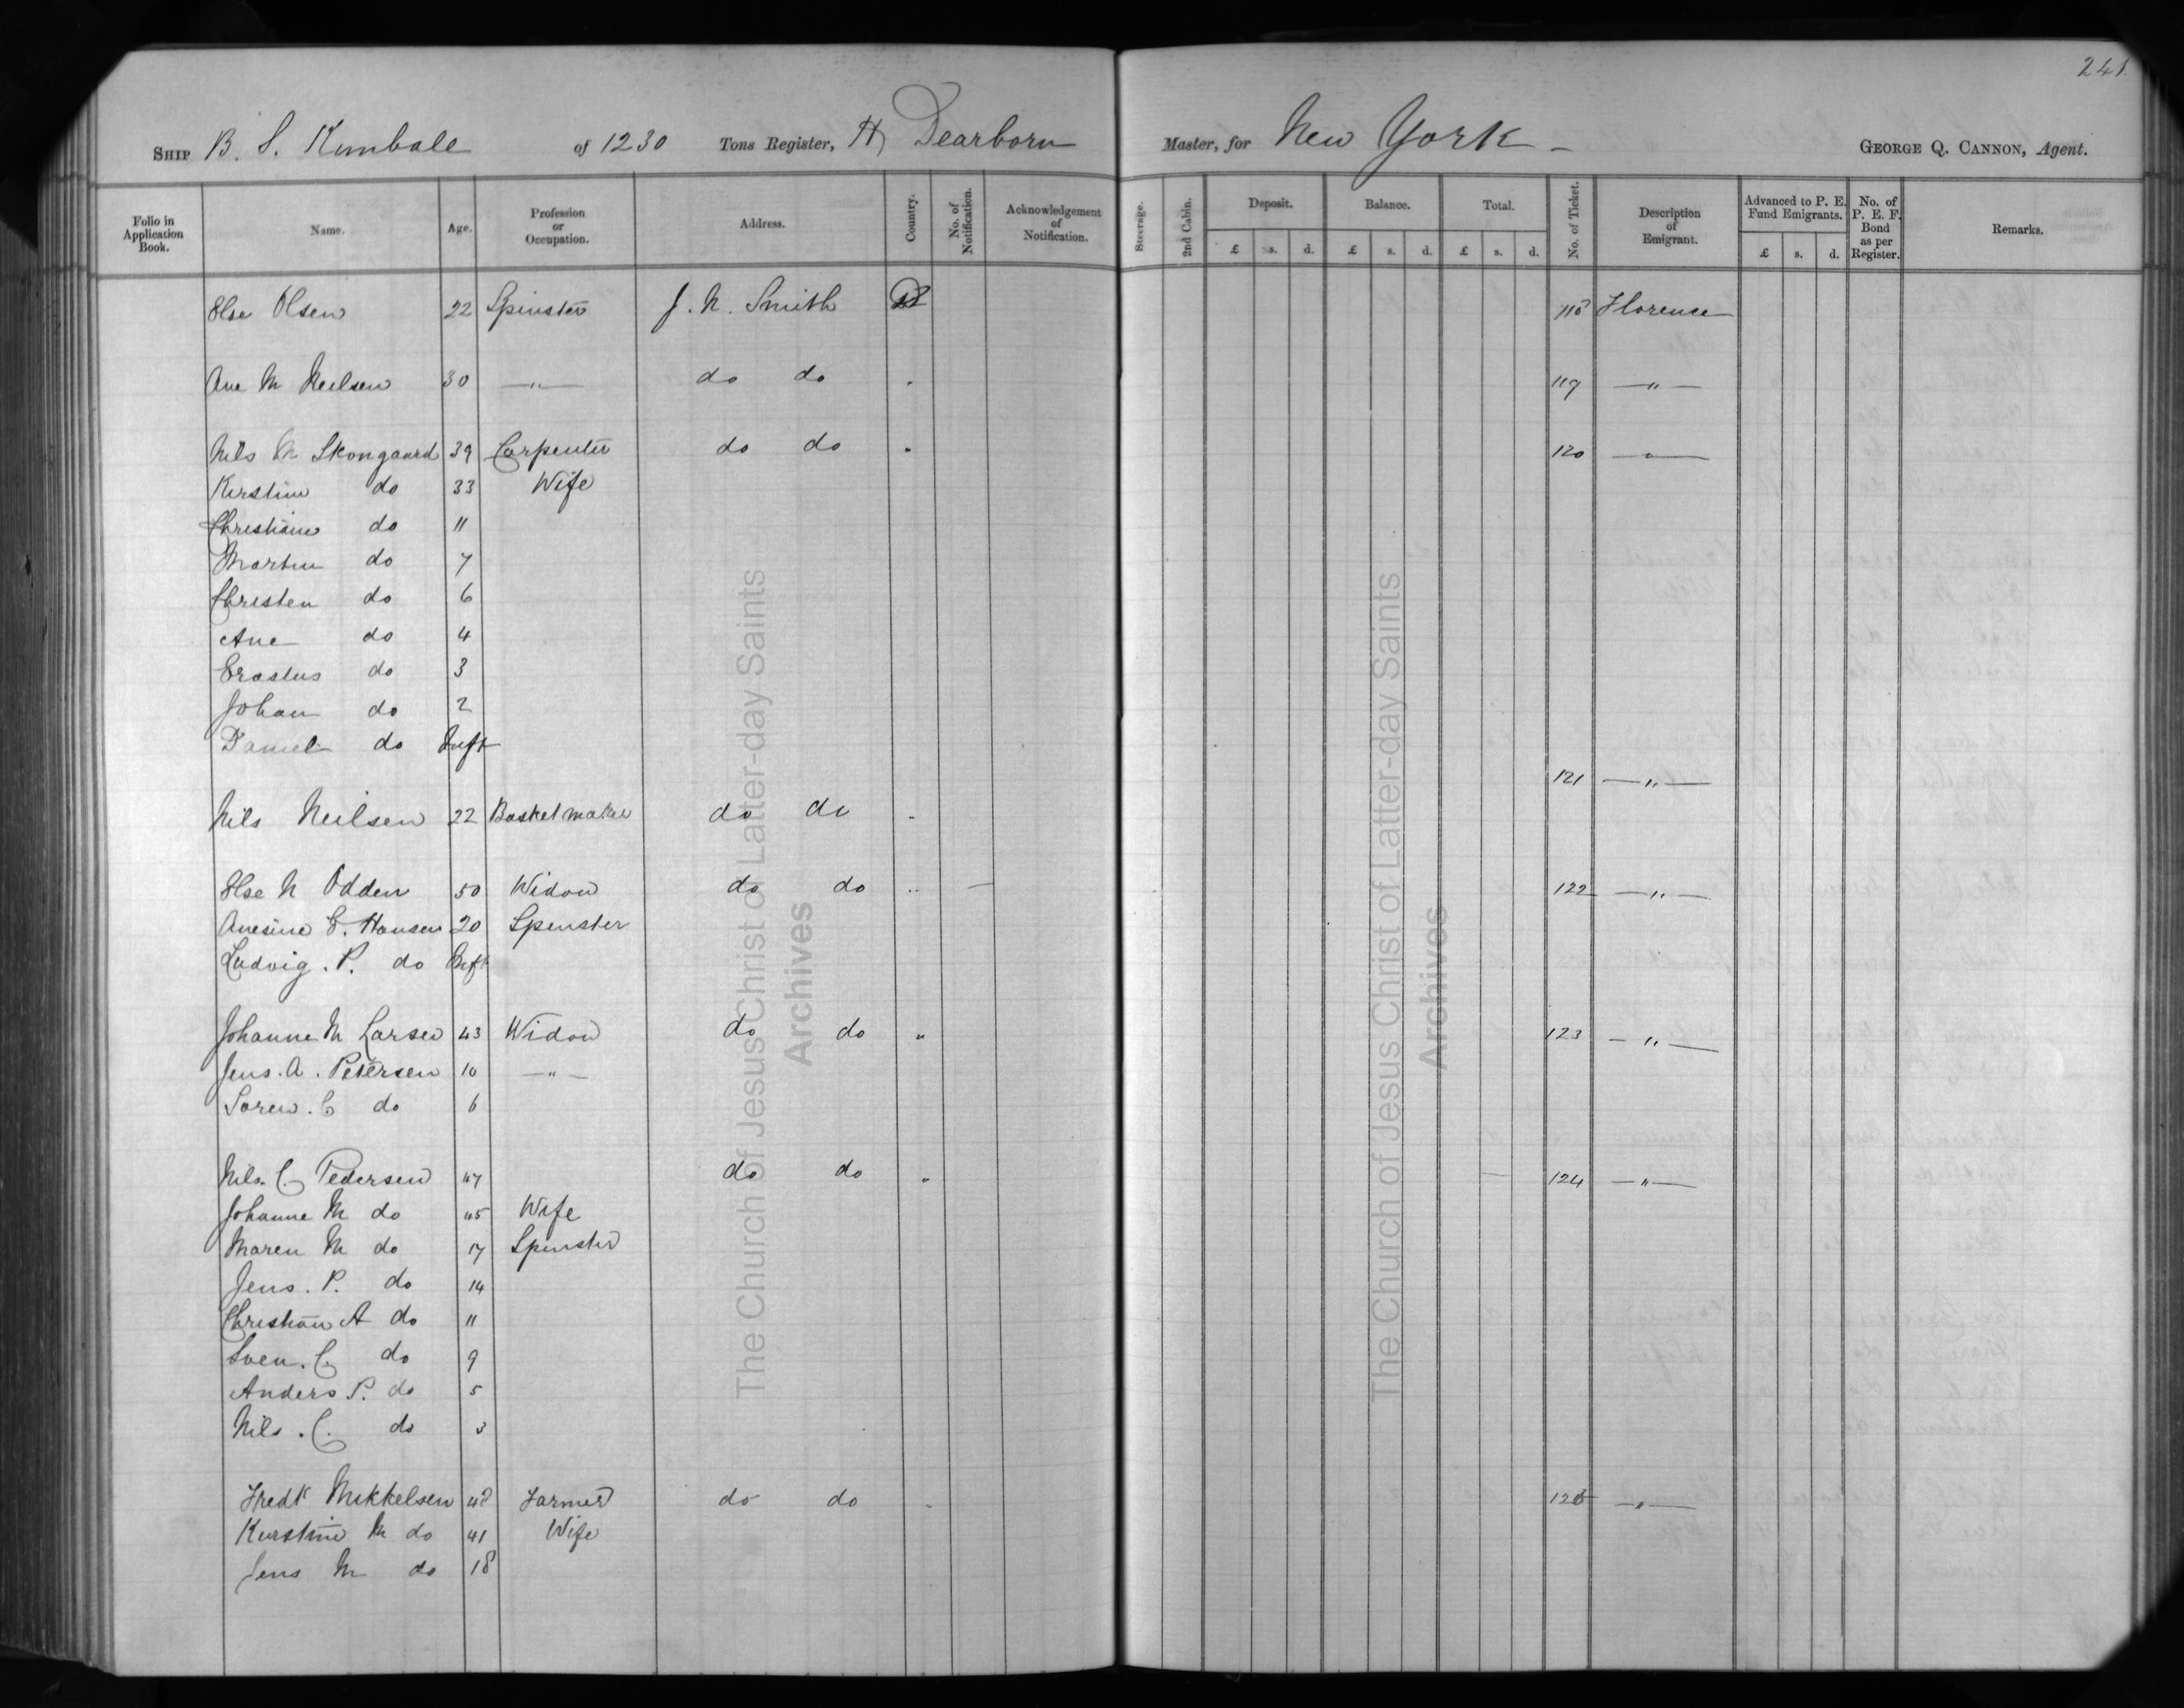 241
SHIP B. S. Kimball of 1230 Tons Register, H Dearborn Master, for New York - GEORGE Q. CANNON, Agent.
Folio in Application Book. Name. Age. Profession or Occupation. Address. Country. No. of Notification. Acknowledgement of Notification. Steerage. 2nd Cabin. Deposit. £ s. d. Balance. £ s. d. Total. £ s. d. No. of Ticket. Description of Emigrant. Advanced to P. E. Fund Emigrants. £ s. d. No. of P. E. F. Bond as per Register. Remarks.
Else Olsen 22 Spinster J. N. Smith 118 Florence
Ane M Neilsen 30 —"— do do " 119 —"—
Nils M Skongaard 39 Carpenter do do " 120 —"—
Kirstine do 33 Wife
Christiane do 11
Martin do 7
Christen do 6
Ane do 4
Erastus do 3
Johan do 2
Daniel do Inft
121 —"—
Nils Neilsen 22 Basket maker do do "
Else N Odden 50 Widow do do " 122 —"—
Anesine C. Hansen 20 Spenster
Ludvig. P. do Inft
Johanne M Larsen 43 Widow do do " 123 —"—
Jens. A. Petersen 10 —"—
Soren. C do 6
Nils. C. Pedersen 47 do do " 124 —"—
Johanne M do 45 Wife
Maren M do 17 Spinster
Jens. P. do 14
Christian A do 11
Sven. C. do 9
Anders P. do 5
Nils. C. do 3
Fredk Mikkelsen 42 Farmer do do " 125 —"—
Kirstine M do 41 Wife
Jens M do 18
The Church of Jesus Christ of Latter-day Saints
Archives
The Church of Jesus Christ of Latter-day Saints
Archives